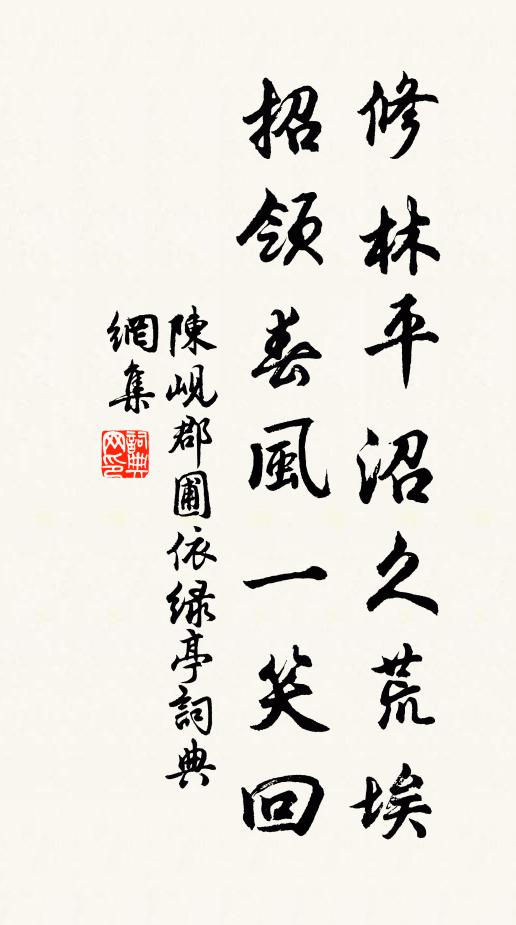 修林平沼久荒埃
招領春風一笑回
陳峴郡圃依綠亭詞典
網集
詞典
网印